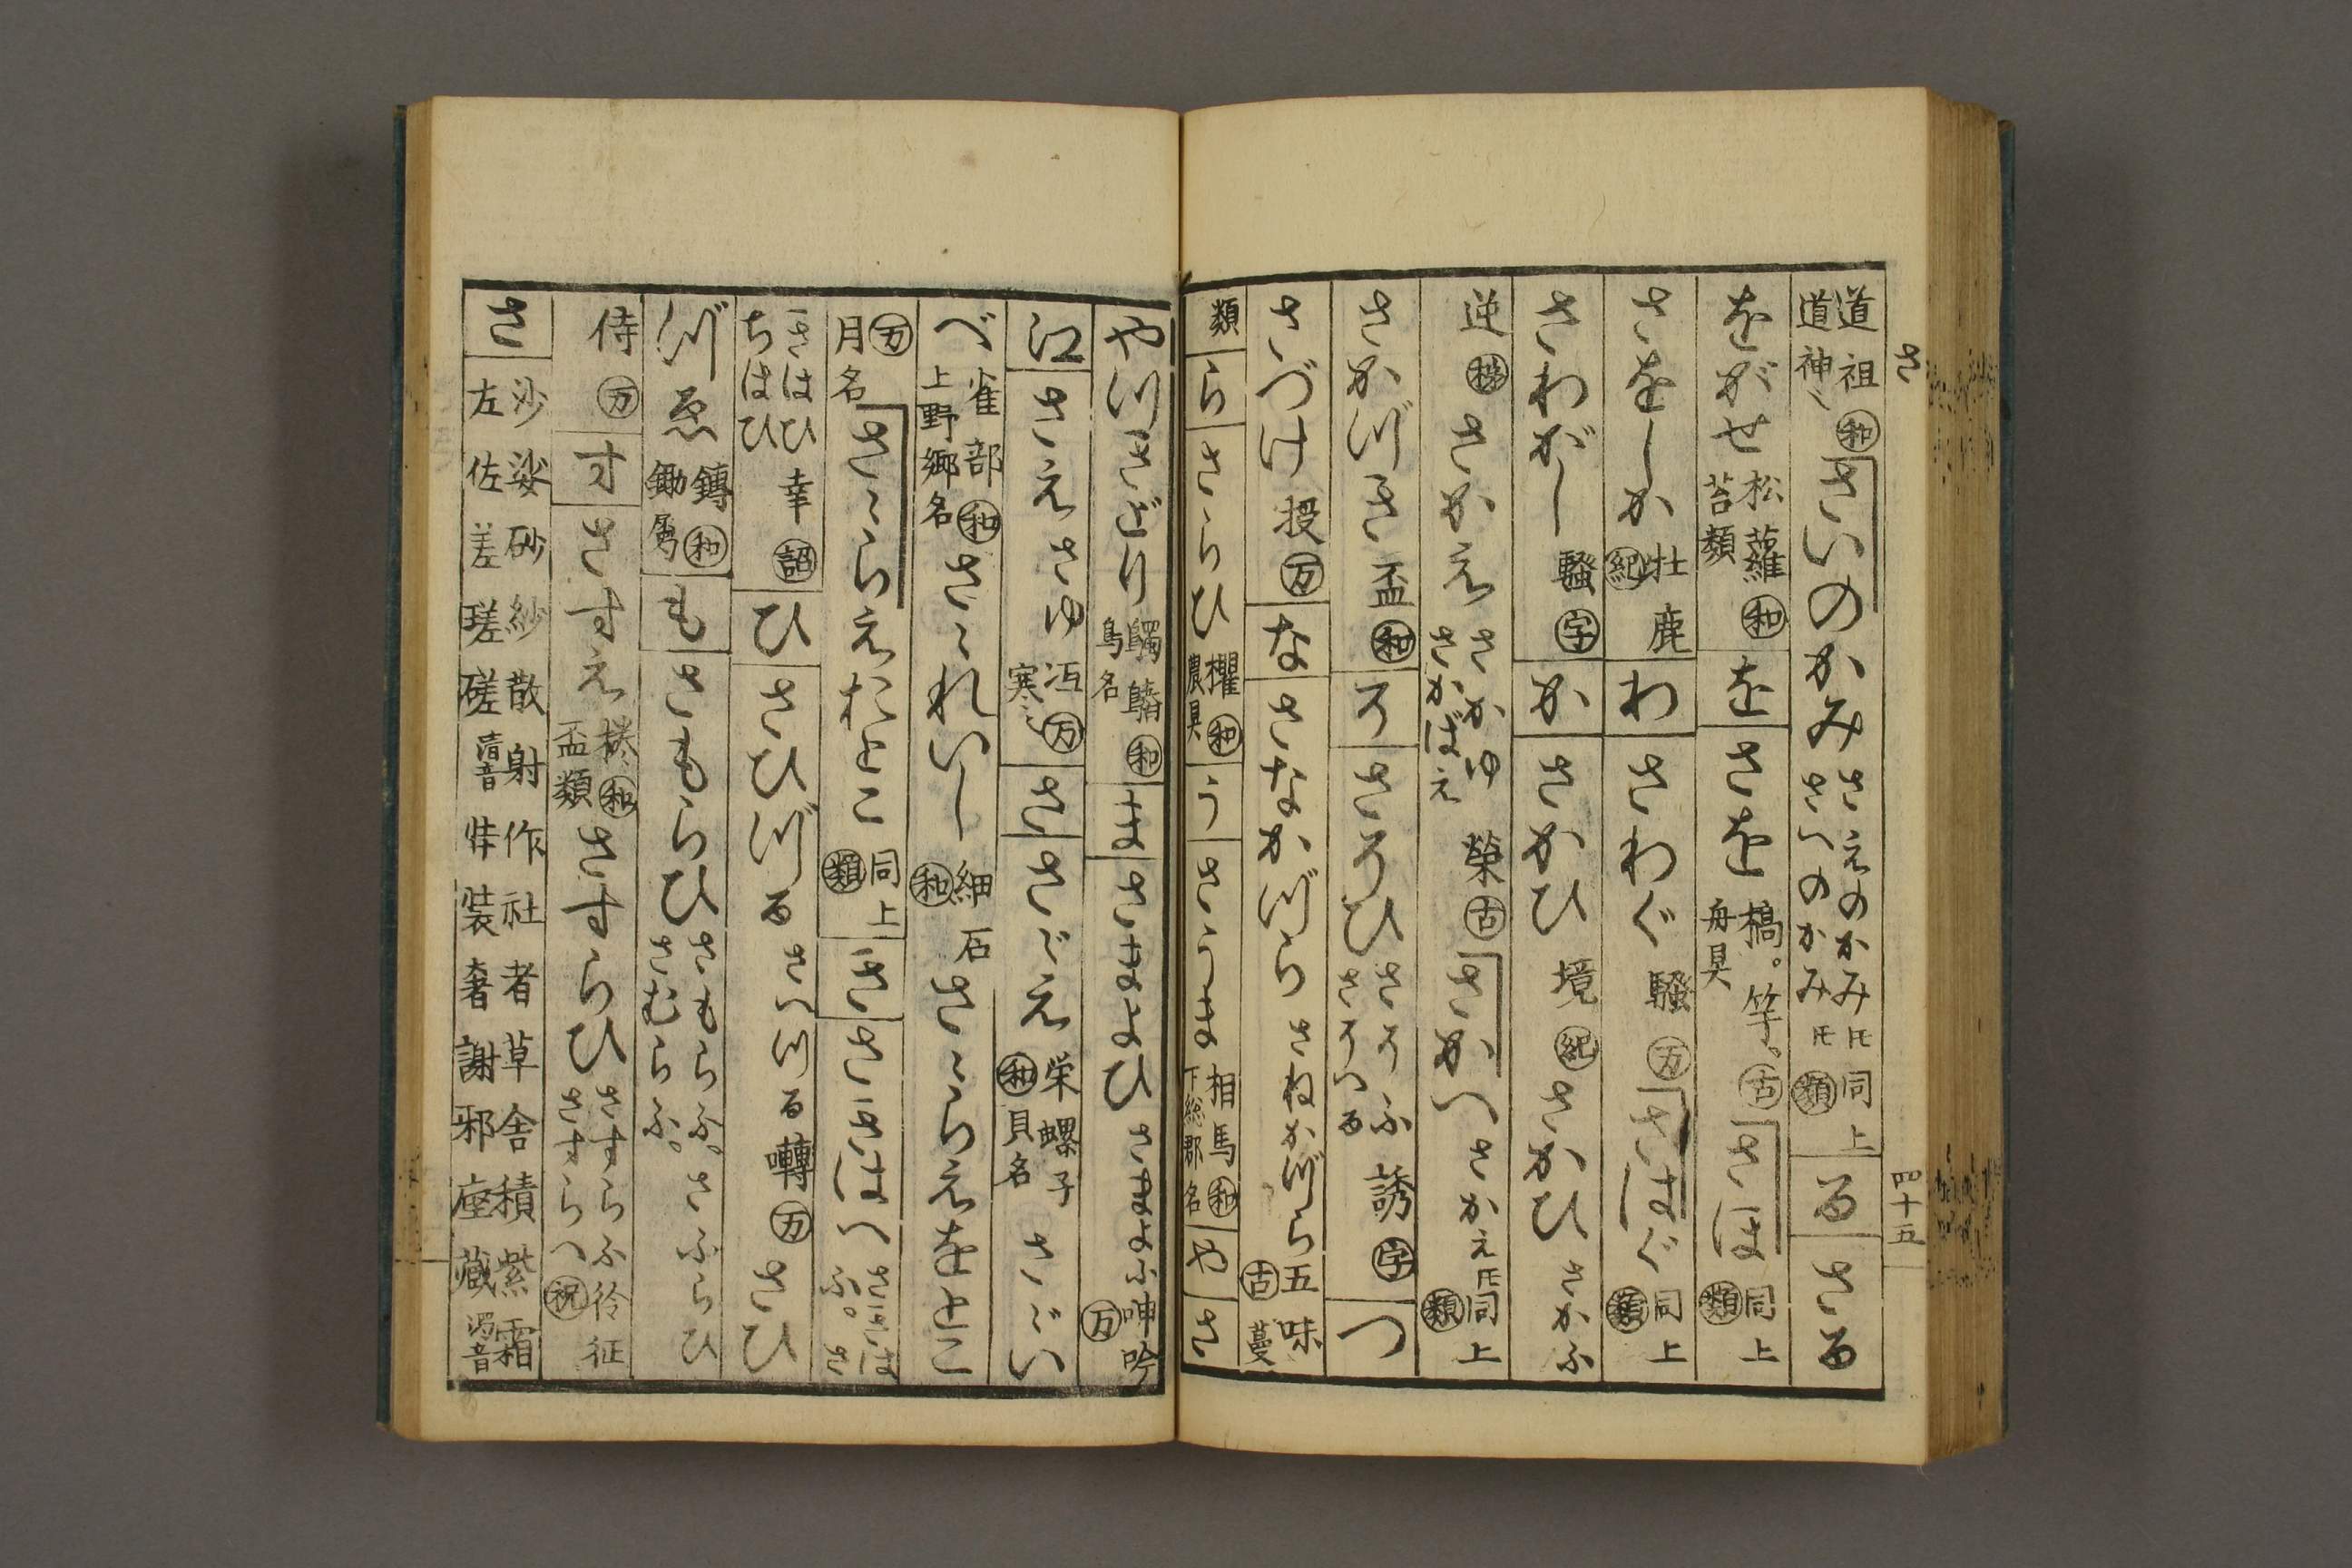 さ
四十五
道祖 道神 和 さいのかみ さえのかみ さへのかみ 氏 氏 同上 類 る さる
をがせ 松蘿 苔類 和 を さを 槁。竿。 舟具 古 さほ 同上 類
さをしか 牡鹿 紀 わ さわぐ 騒 万 さはぐ 同上 類
さわがし 騒 字 か さかひ 境 紀 さかひ さかふ
逆 さかえ さかゆ さかばえ 榮 古 さかへ さかえ 氏 同上 類
さかづき 盃 和 そ さそひ さそふ さそへる 誘 字 つ
さづけ 授 万 な さなかづら さねかづら 五味 古 蔓
類 ら さらひ 欋 農具 和 う さうま 相馬 下総郡名 和 や さ
やつきどり 鳥名 和 ま さまよひ さまよふ 呻吟 万
江 さえ さゆ 冱 寒 万 さ さゞえ 栄螺子 和 貝名 さゞい
べ 雀部 上野郷名 和 さゞれいし 細石 和 さゝらえをとこ
万 月名 さゝらえおとこ 同上 類 き さきはへ さきはふ。さ
きはひ ちはひ 幸 詔 ひ さひづる さへづる 囀 万 さひ
づゑ 鎛 鋤属 和 も さもらひ さもらふ。さむらふ。さふらひ
侍 万 す さすえ 盃類 和 さすらひ さすらふ さすらへ 祝
さ 沙 娑 砂 紗 散 射 作 社 者 草 舎 積 紫 霜
左 佐 差 瑳 磋 清音 装 奢 謝 邪 座 蔵 濁音